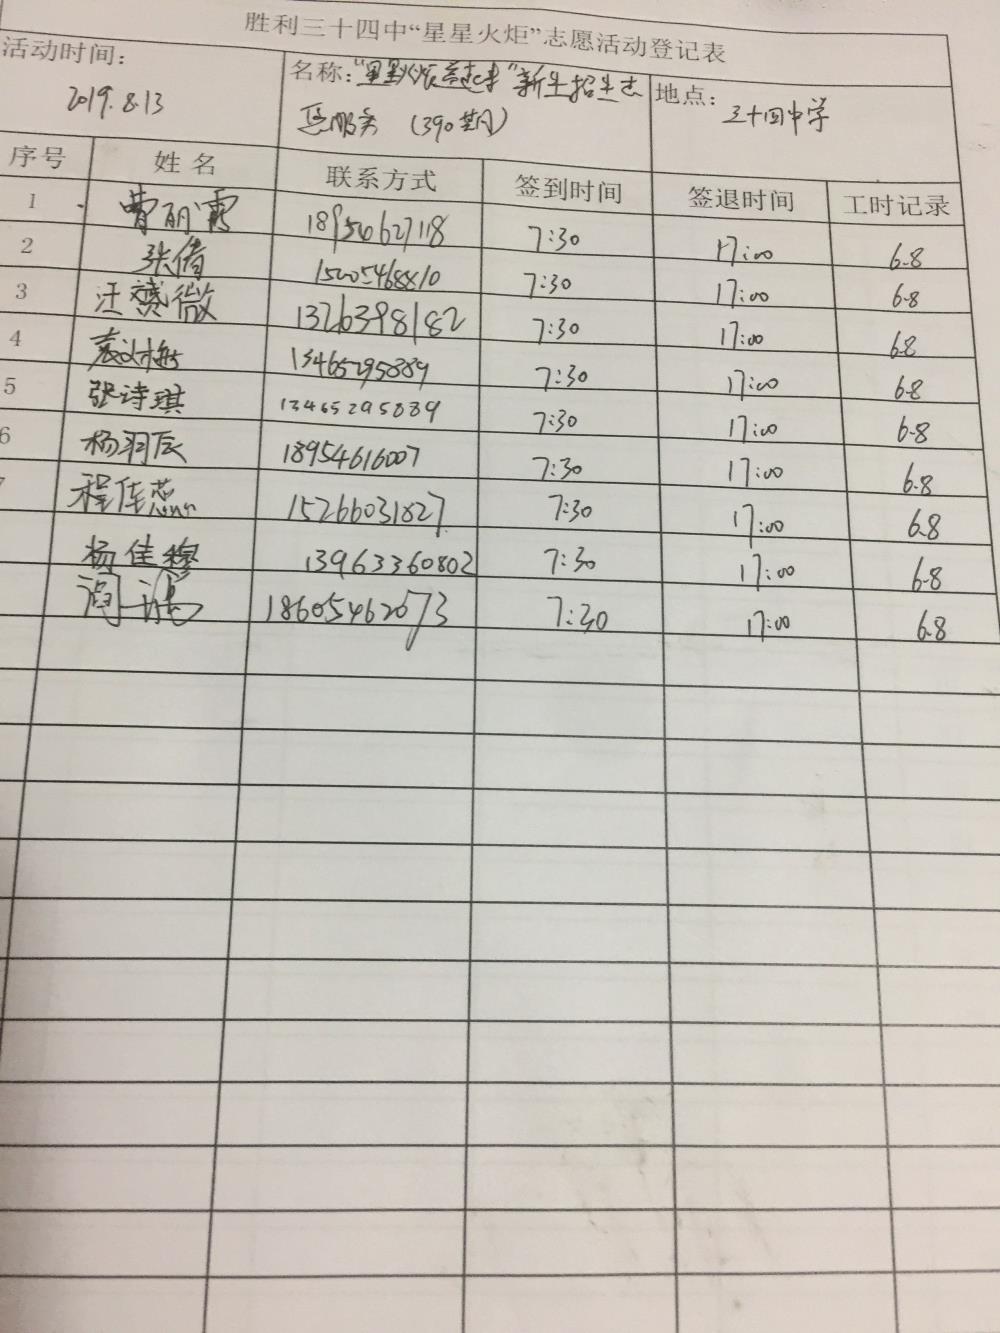 胜利三十四中“星星火炬”志愿活动登记表
活动时间： 名称：“星星火炬 新生招生志 地点：
2019.8.13 愿服务 (390期) 三十四中学
序号 姓名 联系方式 签到时间 签退时间 工时记录
1 曹丽霞 18954627118 7:30 17:00 6.8
2 张倩 7:30 17:00 6.8
3 汪赟微 13263398182 7:30 17:00 6.8
4 13465295889 7:30 17:00 6.8
5 张诗琪 13465295889 7:30 17:00 6.8
6 杨羽辰 18954616007 7:30 17:00 6.8
7 程佳蕊 15266031827 7:30 17:00 6.8
杨佳穆 13963360802 7:30 17:00 6.8
18605462073 7:30 17:00 6.8